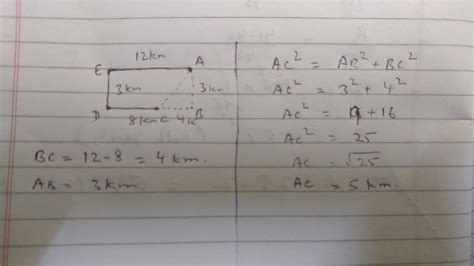 12km
E A
3km 3km
D 8km C 4k B
BC = 12-8 = 4 km.
AB = 3km
AC² = AB² + BC²
AC² = 3² + 4²
AC² = 9 + 16
AC² = 25
AC = √25
AC = 5 km.